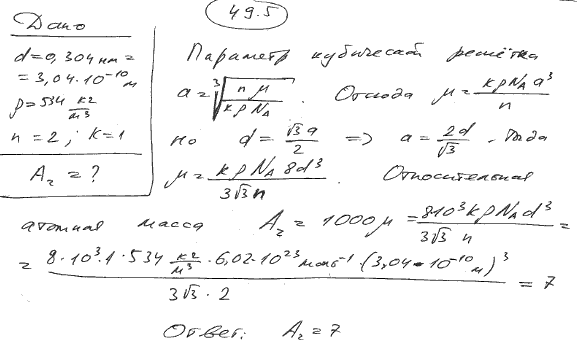 49.5
Дано
d=0,304 нм =
= 3,04·10⁻¹⁰ м
ρ=534 кг/м³
n=2; k=1
A₂ = ?
Параметр кубической решётки
a = ∛(nμ/(kρN_A)). Отсюда μ = kρN_A a³/n
но d = √3a/2 => a = 2d/√3. Тогда
μ = kρN_A 8d³/(3√3 n). Относительная
атомная масса A₂ = 1000μ = 8·10³kρN_A d³/(3√3 n) =
= 8·10³·1·534 кг/м³ · 6,02·10²³ моль⁻¹ (3,04·10⁻¹⁰ м)³/(3√3·2) = 7
Ответ: A₂=7